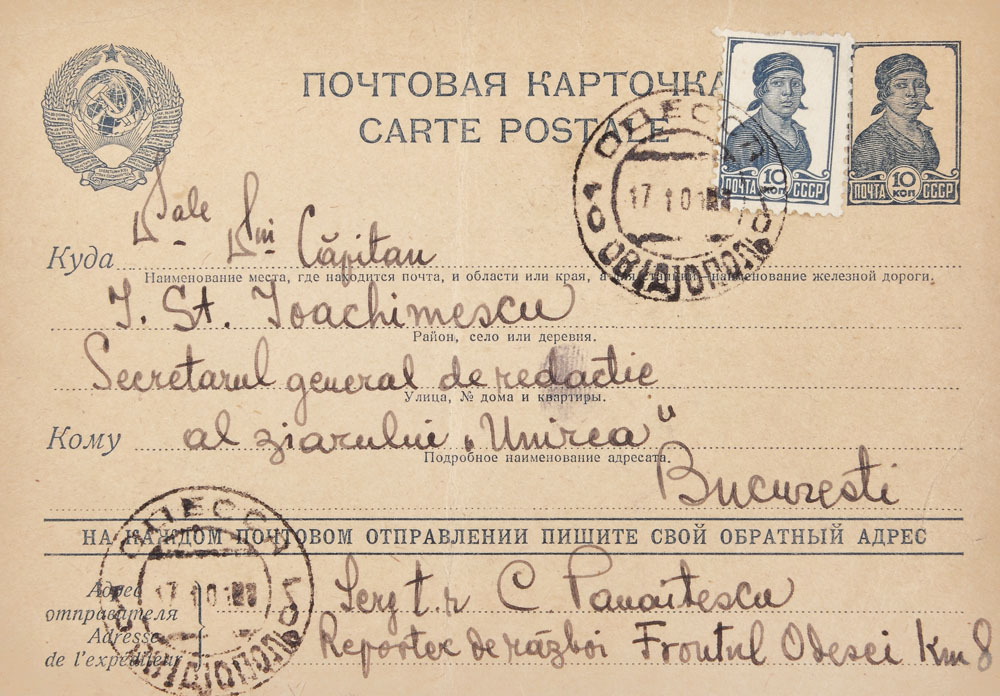 ПОЧТОВАЯ КАРТОЧКА
CARTE POSTALE
10 КОП
ПОЧТА СССР
10 КОП
ПОЧТА СССР
ОДЕССА
17 10
ОВІДІОПОЛЬ
D-sale
Куда D-lui Căpitan
Наименование места, где находится почта, и области или края, а для станции—наименование железной дороги.
I. St. Ioachimescu
Район, село или деревня.
Secretarul general de redacție
Улица, № дома и квартиры.
Кому al ziarului „Unirea"
Подробное наименование адресата.
București
НА КАЖДОМ ПОЧТОВОМ ОТПРАВЛЕНИИ ПИШИТЕ СВОЙ ОБРАТНЫЙ АДРЕС
ОДЕССА
17 10
ОВІДІОПОЛЬ
Адрес
отправителя
Adresse
de l'expéditeur
Serg t.r C. Panaitescu
Reporter de război Frontul Odesei Km 8